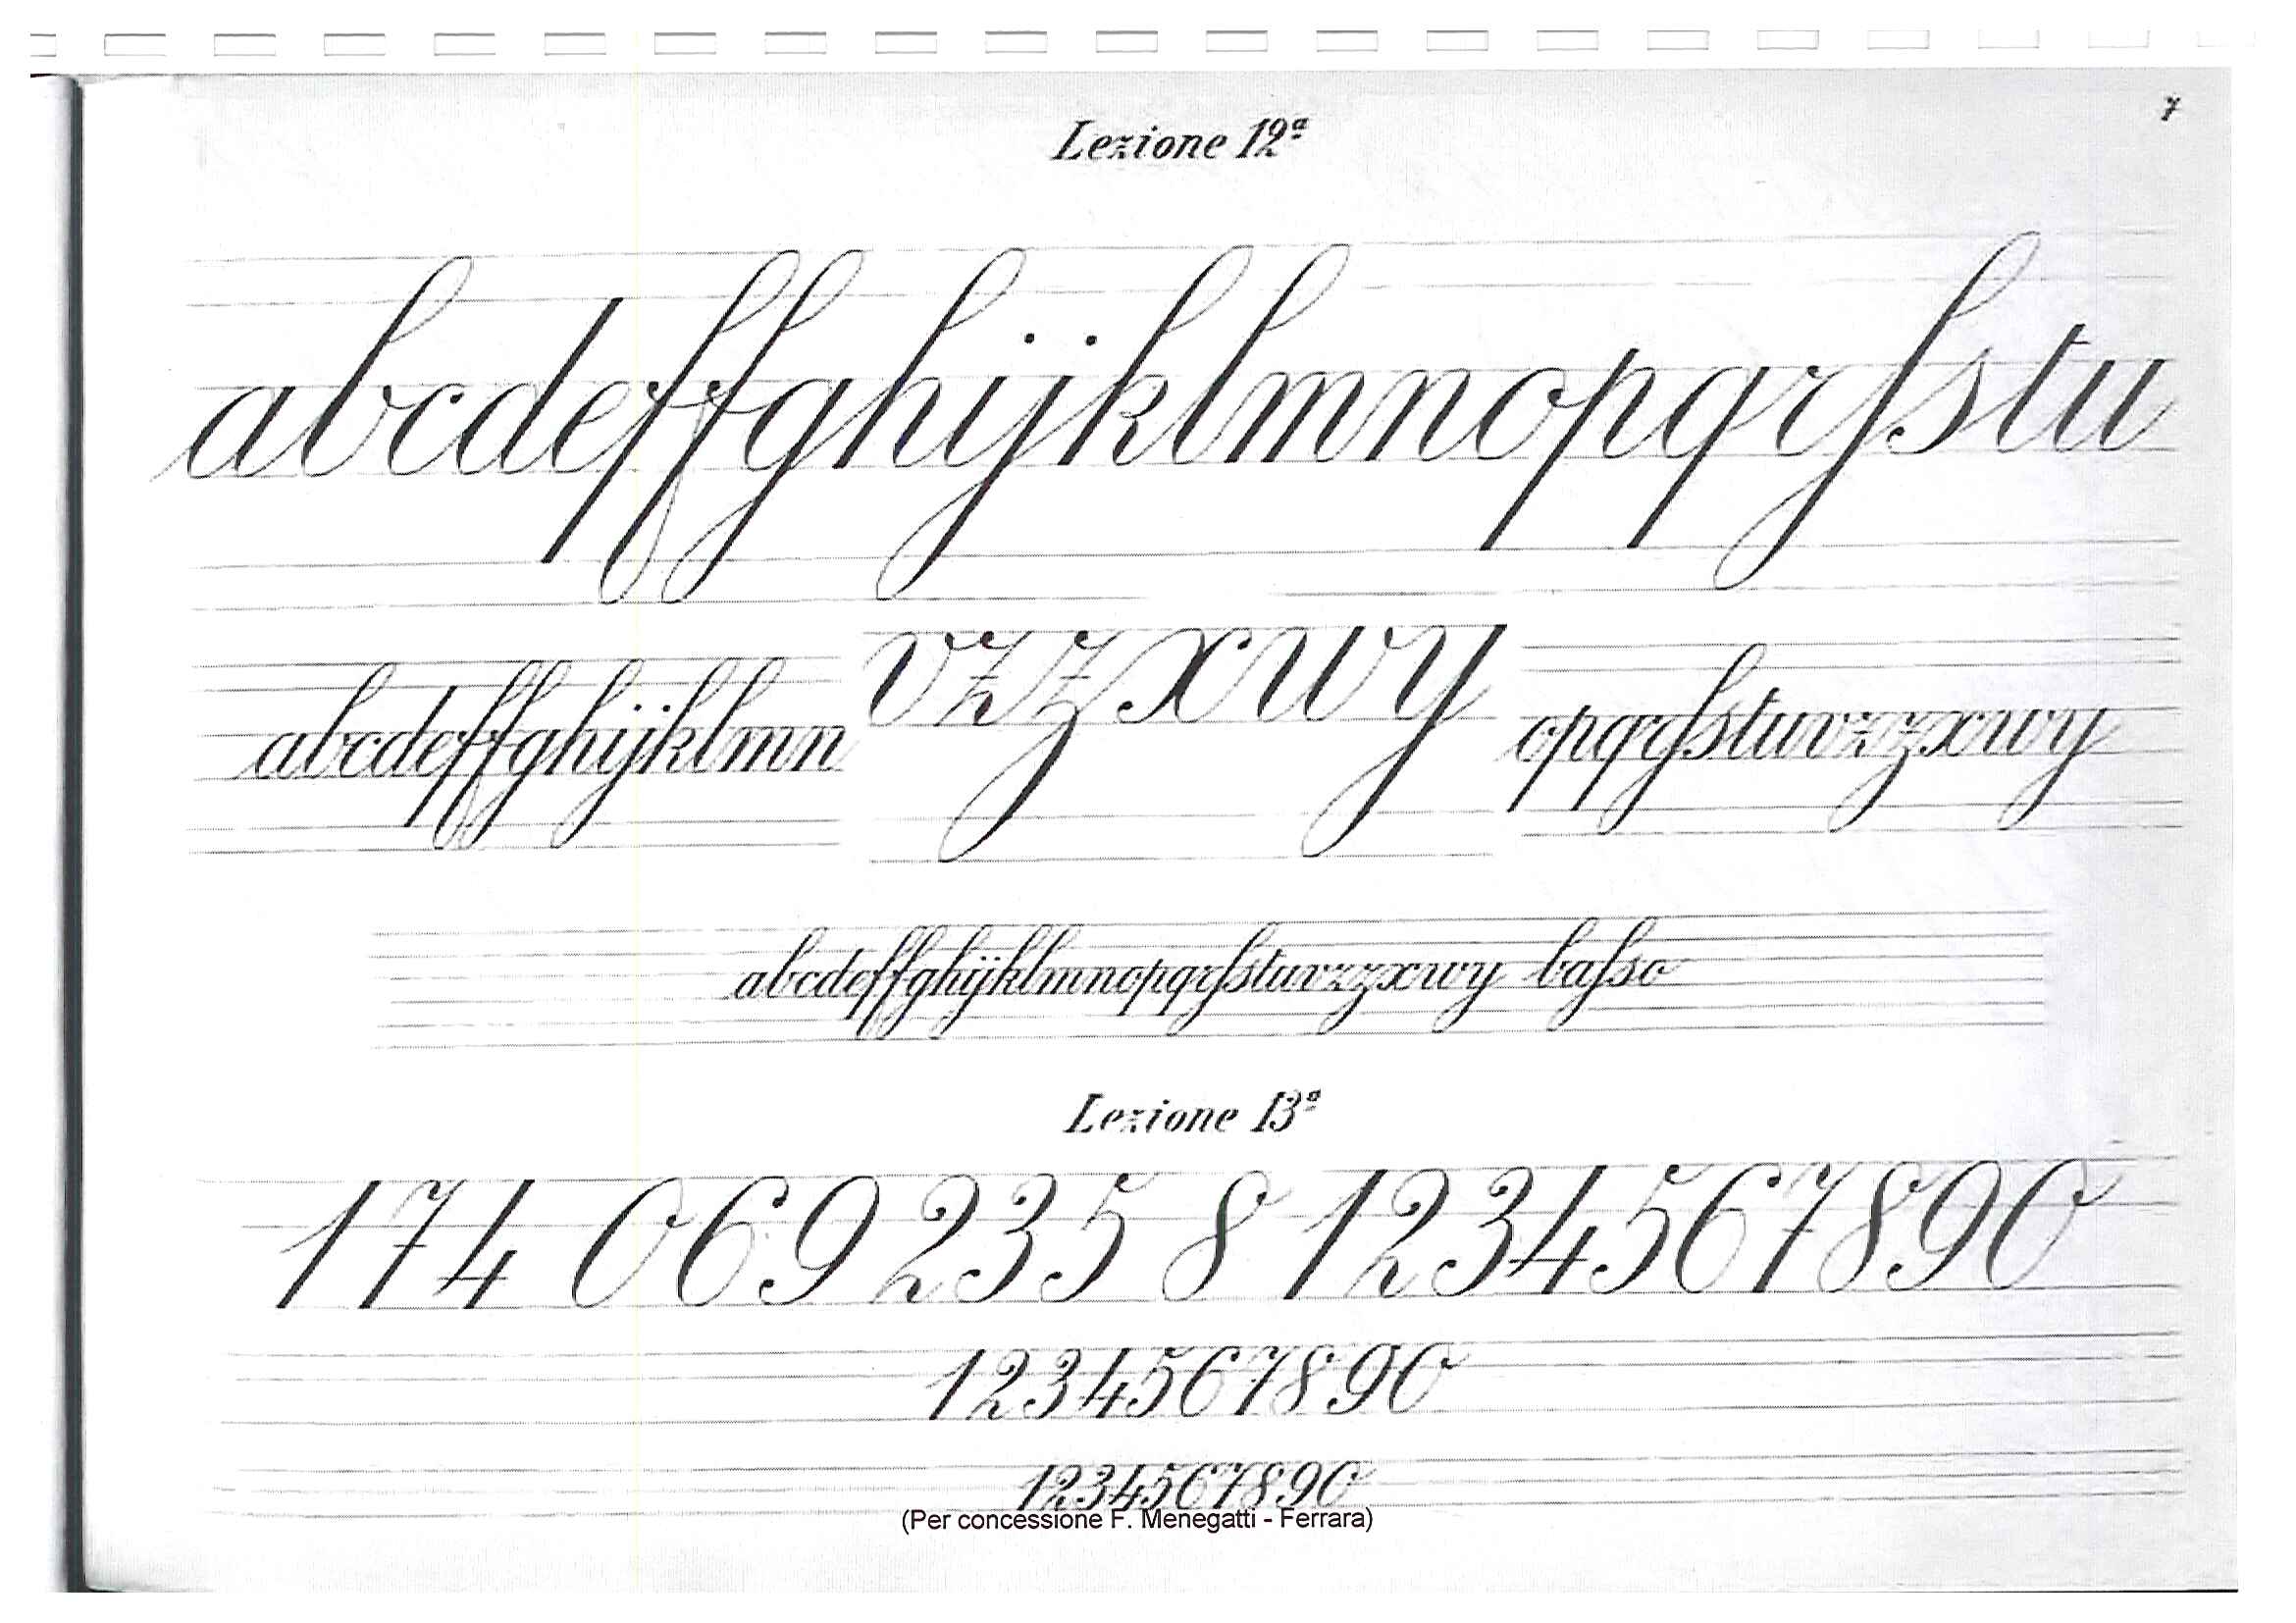 7
Lezione 12ª
abcdeffghijklmnopqrſstu
abcdeffghijklmn vzzxwy opqrſstuvzzxwy
abcdeffghijklmnopqrſstuvzzxwy baſso
Lezione 13ª
174 069 235 8 1234567890
1234567890
1234567890
(Per concessione F. Menegatti - Ferrara)